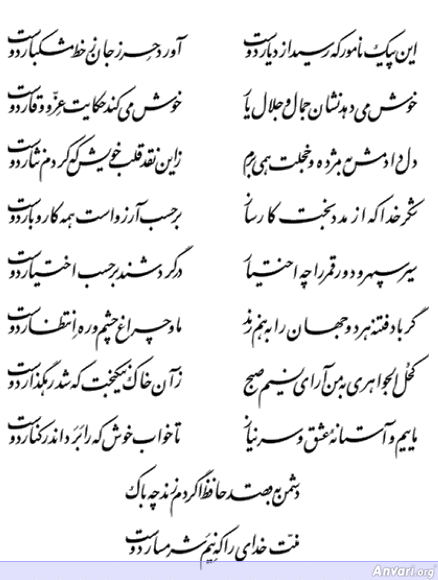 این پیک نامور که رسید از دیار دوست آورد حرز جان ز خط مشکبار دوست
خوش می دهد نشان جمال و جلال یار خوش می کند حکایت عز و وقار دوست
دل دادمش به مژده و خجلت همی برم زاین نقد قلب خویش که کردم نثار دوست
شکر خدا که از مدد بخت کارساز برحسب آرزو است همه کار و بار دوست
سیر سپهر و دور قمر را چه اختیار در گردشند برحسب اختیار دوست
گر باد فتنه هر دو جهان را به هم زند ما و چراغ چشم و ره انتظار دوست
کحل الجواهری به من آر ای نسیم صبح زآن خاک نیکبخت که شد رهگذار دوست
ماییم و آستانه عشق و سر نیاز تا خواب خوش که را برد اندر کنار دوست
دشمن به قصد حافظ اگر دم زند چه باک
منّت خدای را که نِیَم شرمسار دوست
Anvari.org